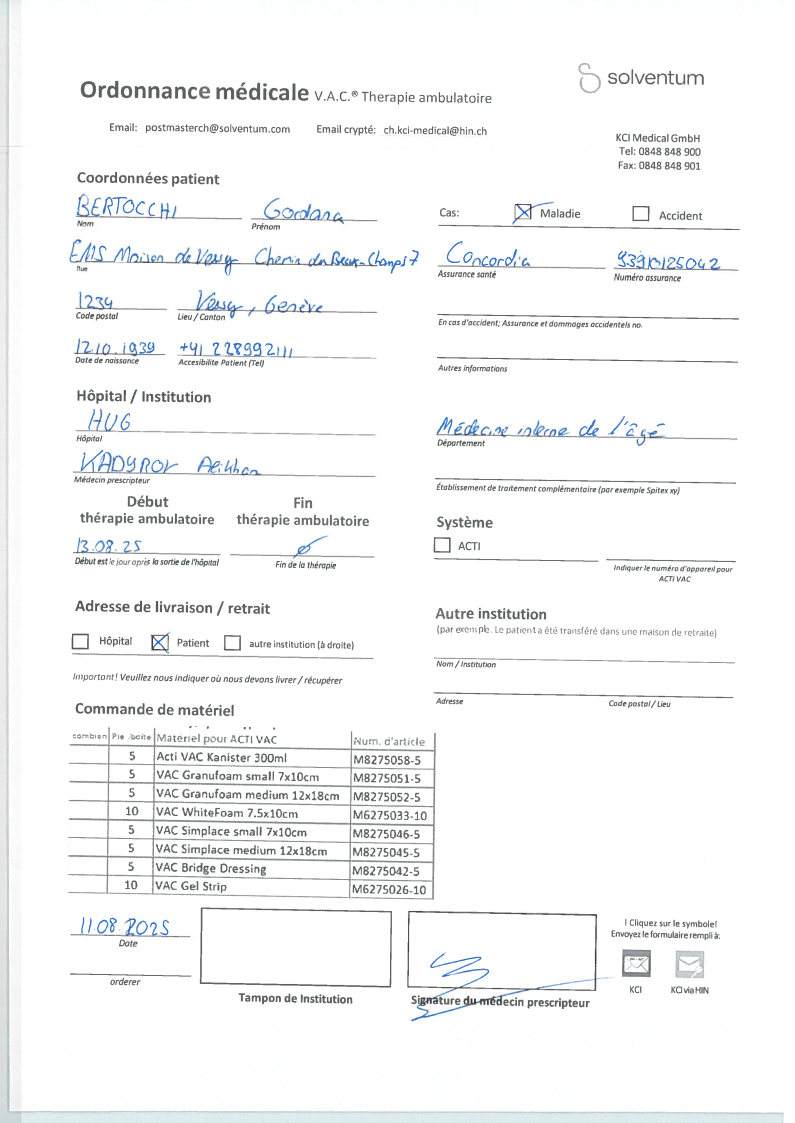 solventum
Ordonnance médicale V.A.C.® Therapie ambulatoire
Email: postmasterch@solventum.com Email crypté: ch.kci-medical@hin.ch
KCI Medical GmbH
Tel: 0848 848 900
Fax: 0848 848 901
Coordonnées patient
BERTOCCHI Gordana
Nom Prénom
Cas: Maladie Accident
EMS Maison de Vessy Chemin des Beaux-Champs 7
Rue
Concordia 9390125042
Assurance santé Numéro assurance
1234 Vessy, Genève
Code postal Lieu / Canton
En cas d'accident; Assurance et dommages accidentels no.
12.10.1939 +41 228992111
Date de naissance Accesibilite Patient (Tel)
Autres informations
Hôpital / Institution
HUG
Hôpital
Médecine interne de l'âgé
Département
KADYROV
Médecin prescripteur
Établissement de traitement complémentaire (par exemple Spitex xy)
Début thérapie ambulatoire
Fin thérapie ambulatoire
13.08.25 ø
Début est le jour après la sortie de l'hôpital Fin de la thérapie
Système
ACTI
Indiquer le numéro d'appareil pour
ACTI VAC
Adresse de livraison / retrait
Hôpital Patient autre institution (à droite)
Important! Veuillez nous indiquer où nous devons livrer / récupérer
Autre institution
(par exemple. Le patient a été transféré dans une maison de retraite)
Nom / Institution
Adresse Code postal / Lieu
Commande de matériel
combien Pie./boite Materiel pour ACTI VAC Num. d'article
5 Acti VAC Kanister 300ml M8275058-5
5 VAC Granufoam small 7x10cm M8275051-5
5 VAC Granufoam medium 12x18cm M8275052-5
10 VAC WhiteFoam 7.5x10cm M6275033-10
5 VAC Simplace small 7x10cm M8275046-5
5 VAC Simplace medium 12x18cm M8275045-5
5 VAC Bridge Dressing M8275042-5
10 VAC Gel Strip M6275026-10
11.08.2025
Date
orderer
Tampon de Institution
Signature du médecin prescripteur
! Cliquez sur le symbole!
Envoyez le formulaire rempli à:
KCI KCI via HIN